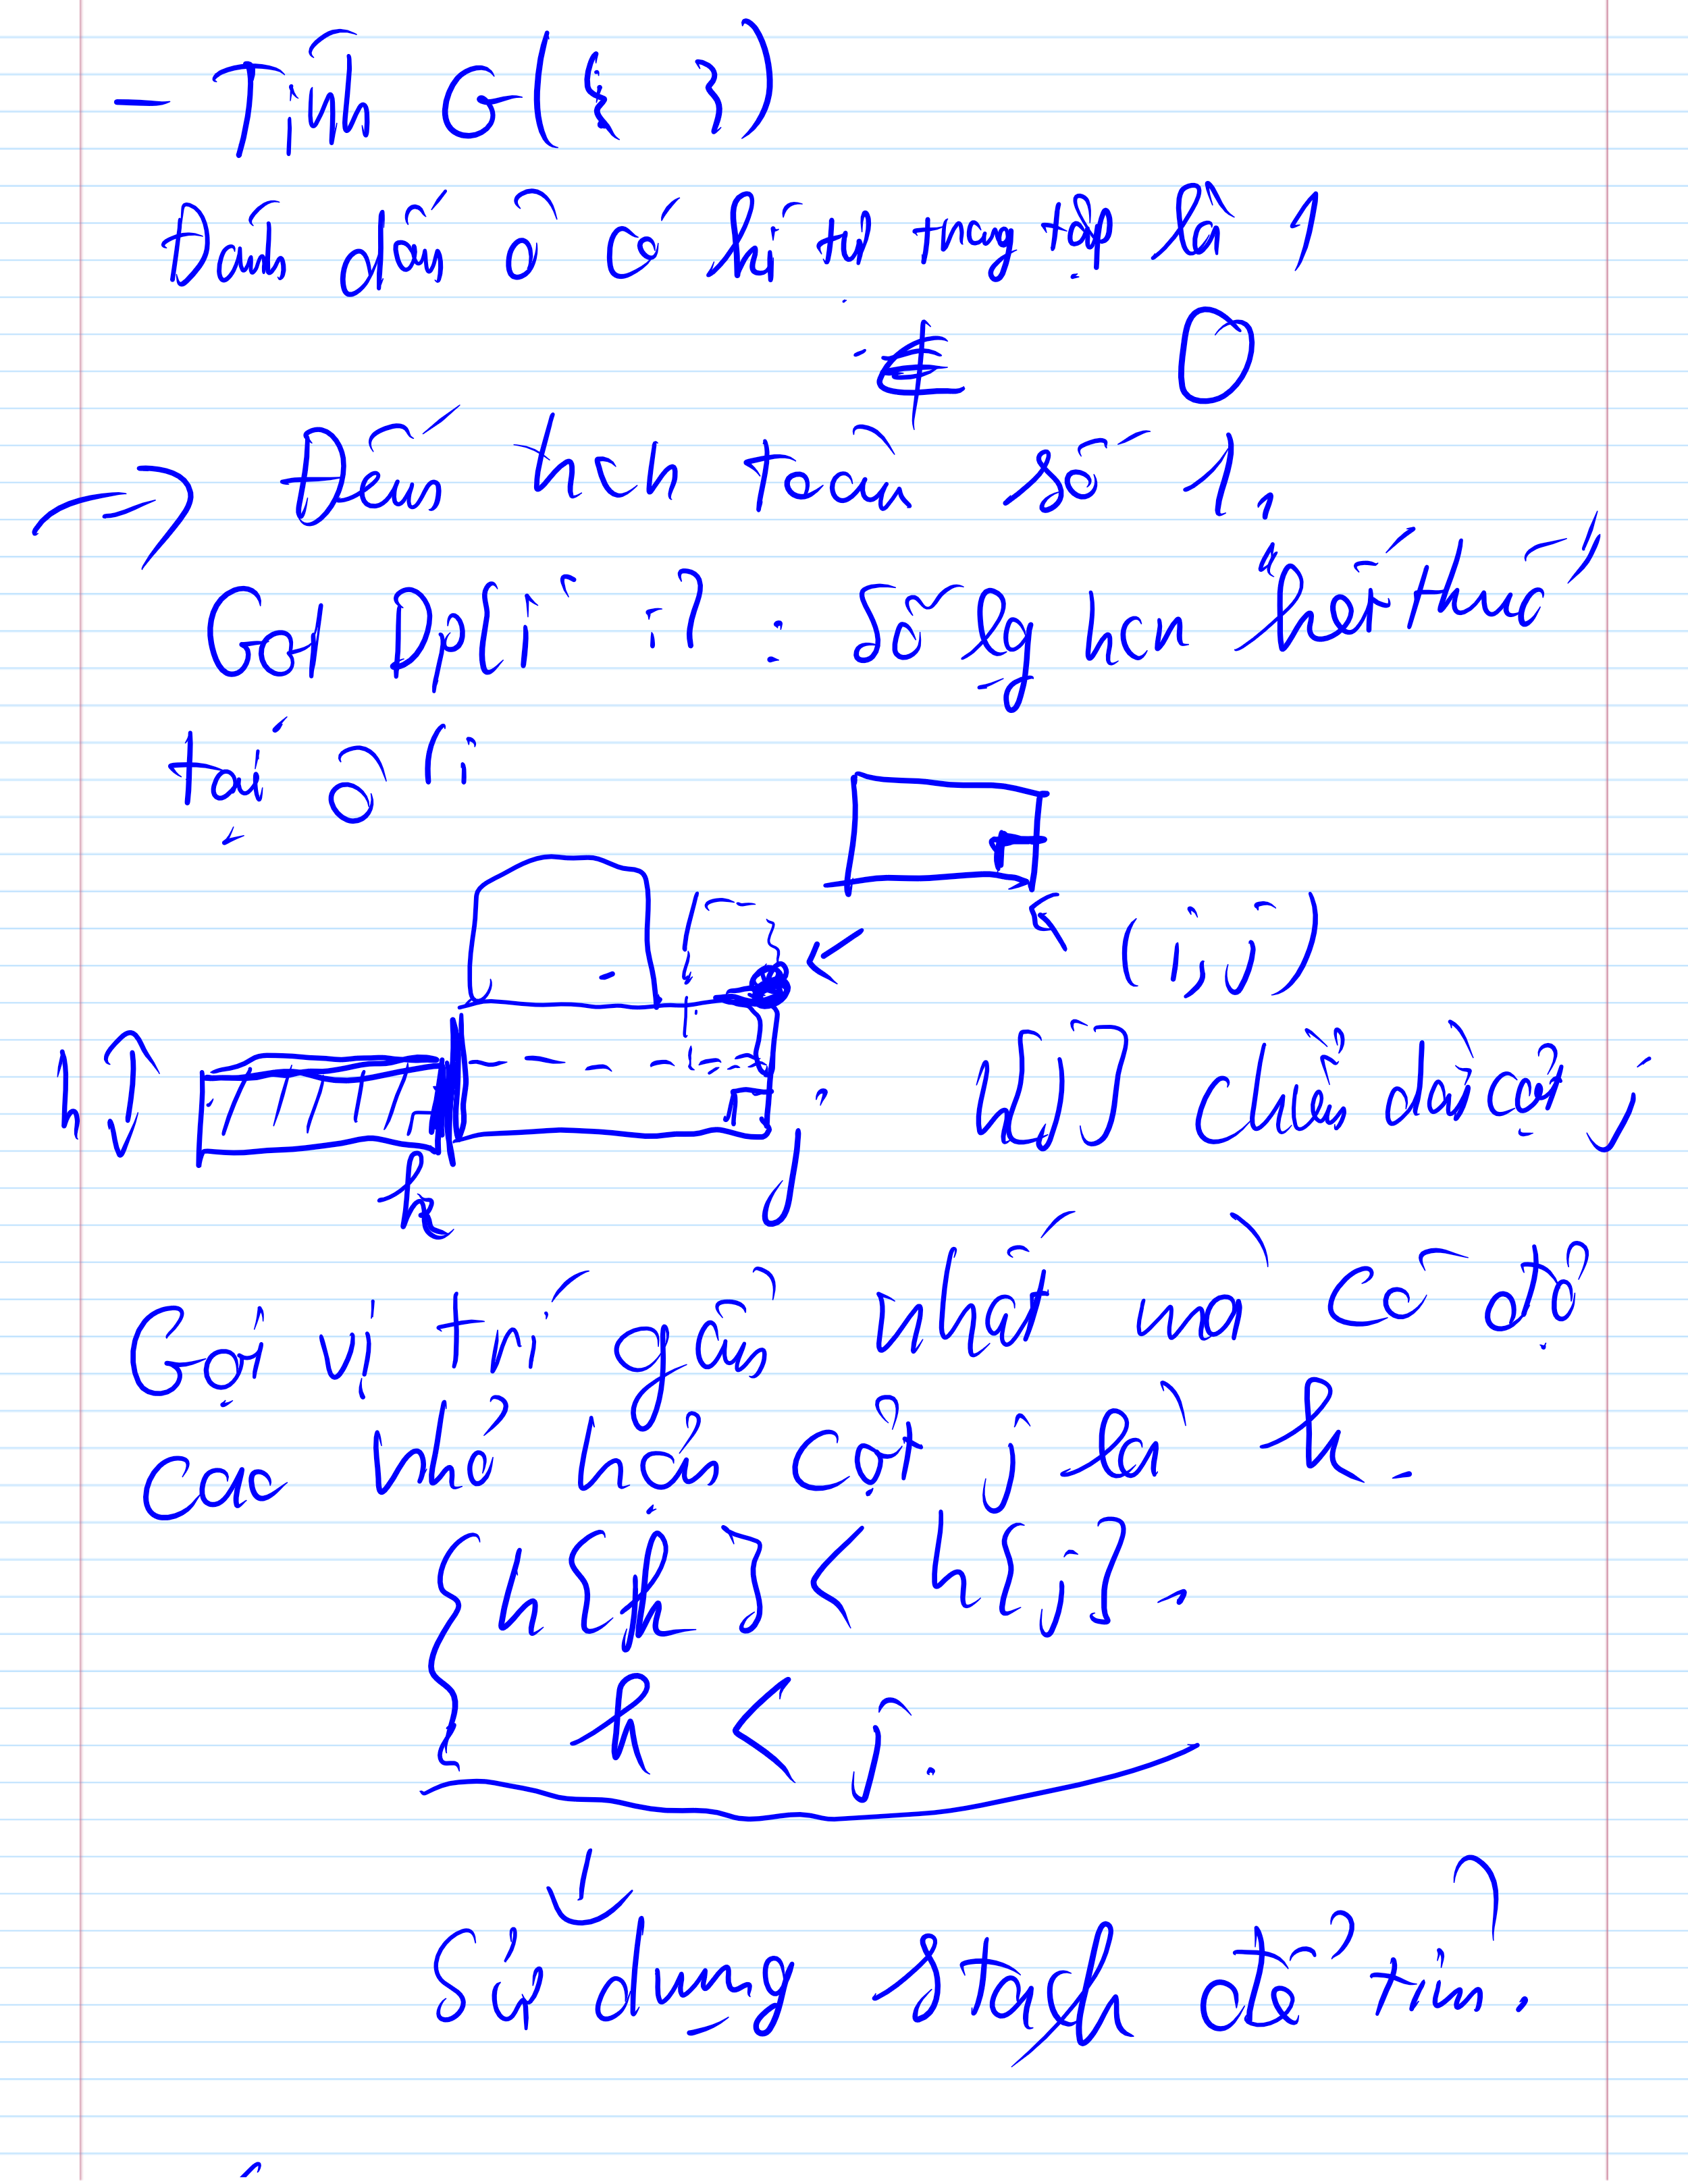 - Tính G({ })
Đánh dấu ô có kí tự trong tập là 1
∉ 0
→ Đếm hch toàn số 1,
Gọi Dp[i = ? : số lg hcn kết thúc
tại ô (i
(i, j)
h
h[j] chiều dài cột j
k j
Gọi vị trí gần nhất mà có độ
cao nhỏ hơn cột j là k.
{ h[k] < h[j].
k < j.
↓
Sử dụng stack để tìm.